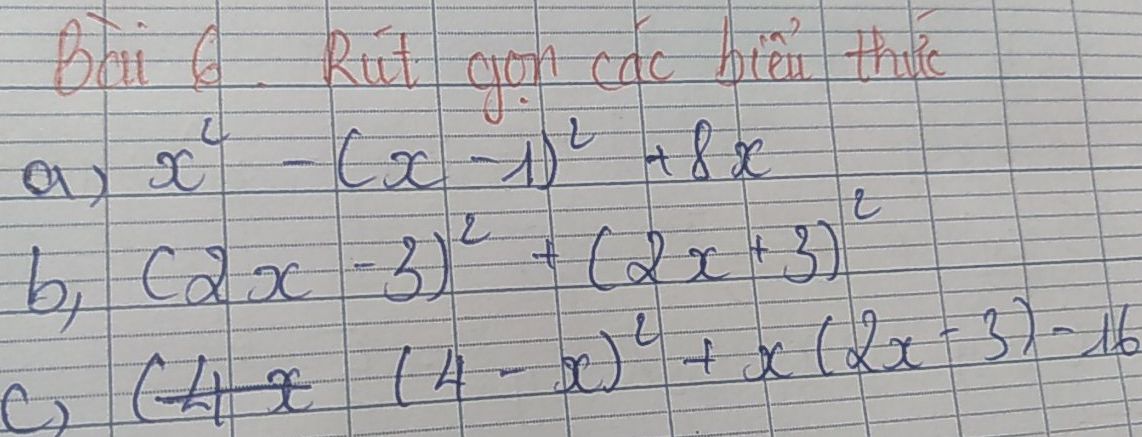 Bài 6. Rút gọn các biểu thức
a) x² - (x - 1)² + 8x
b, (2x - 3)² + (2x + 3)²
c) (4 - x)² + x(2x - 3) - 16